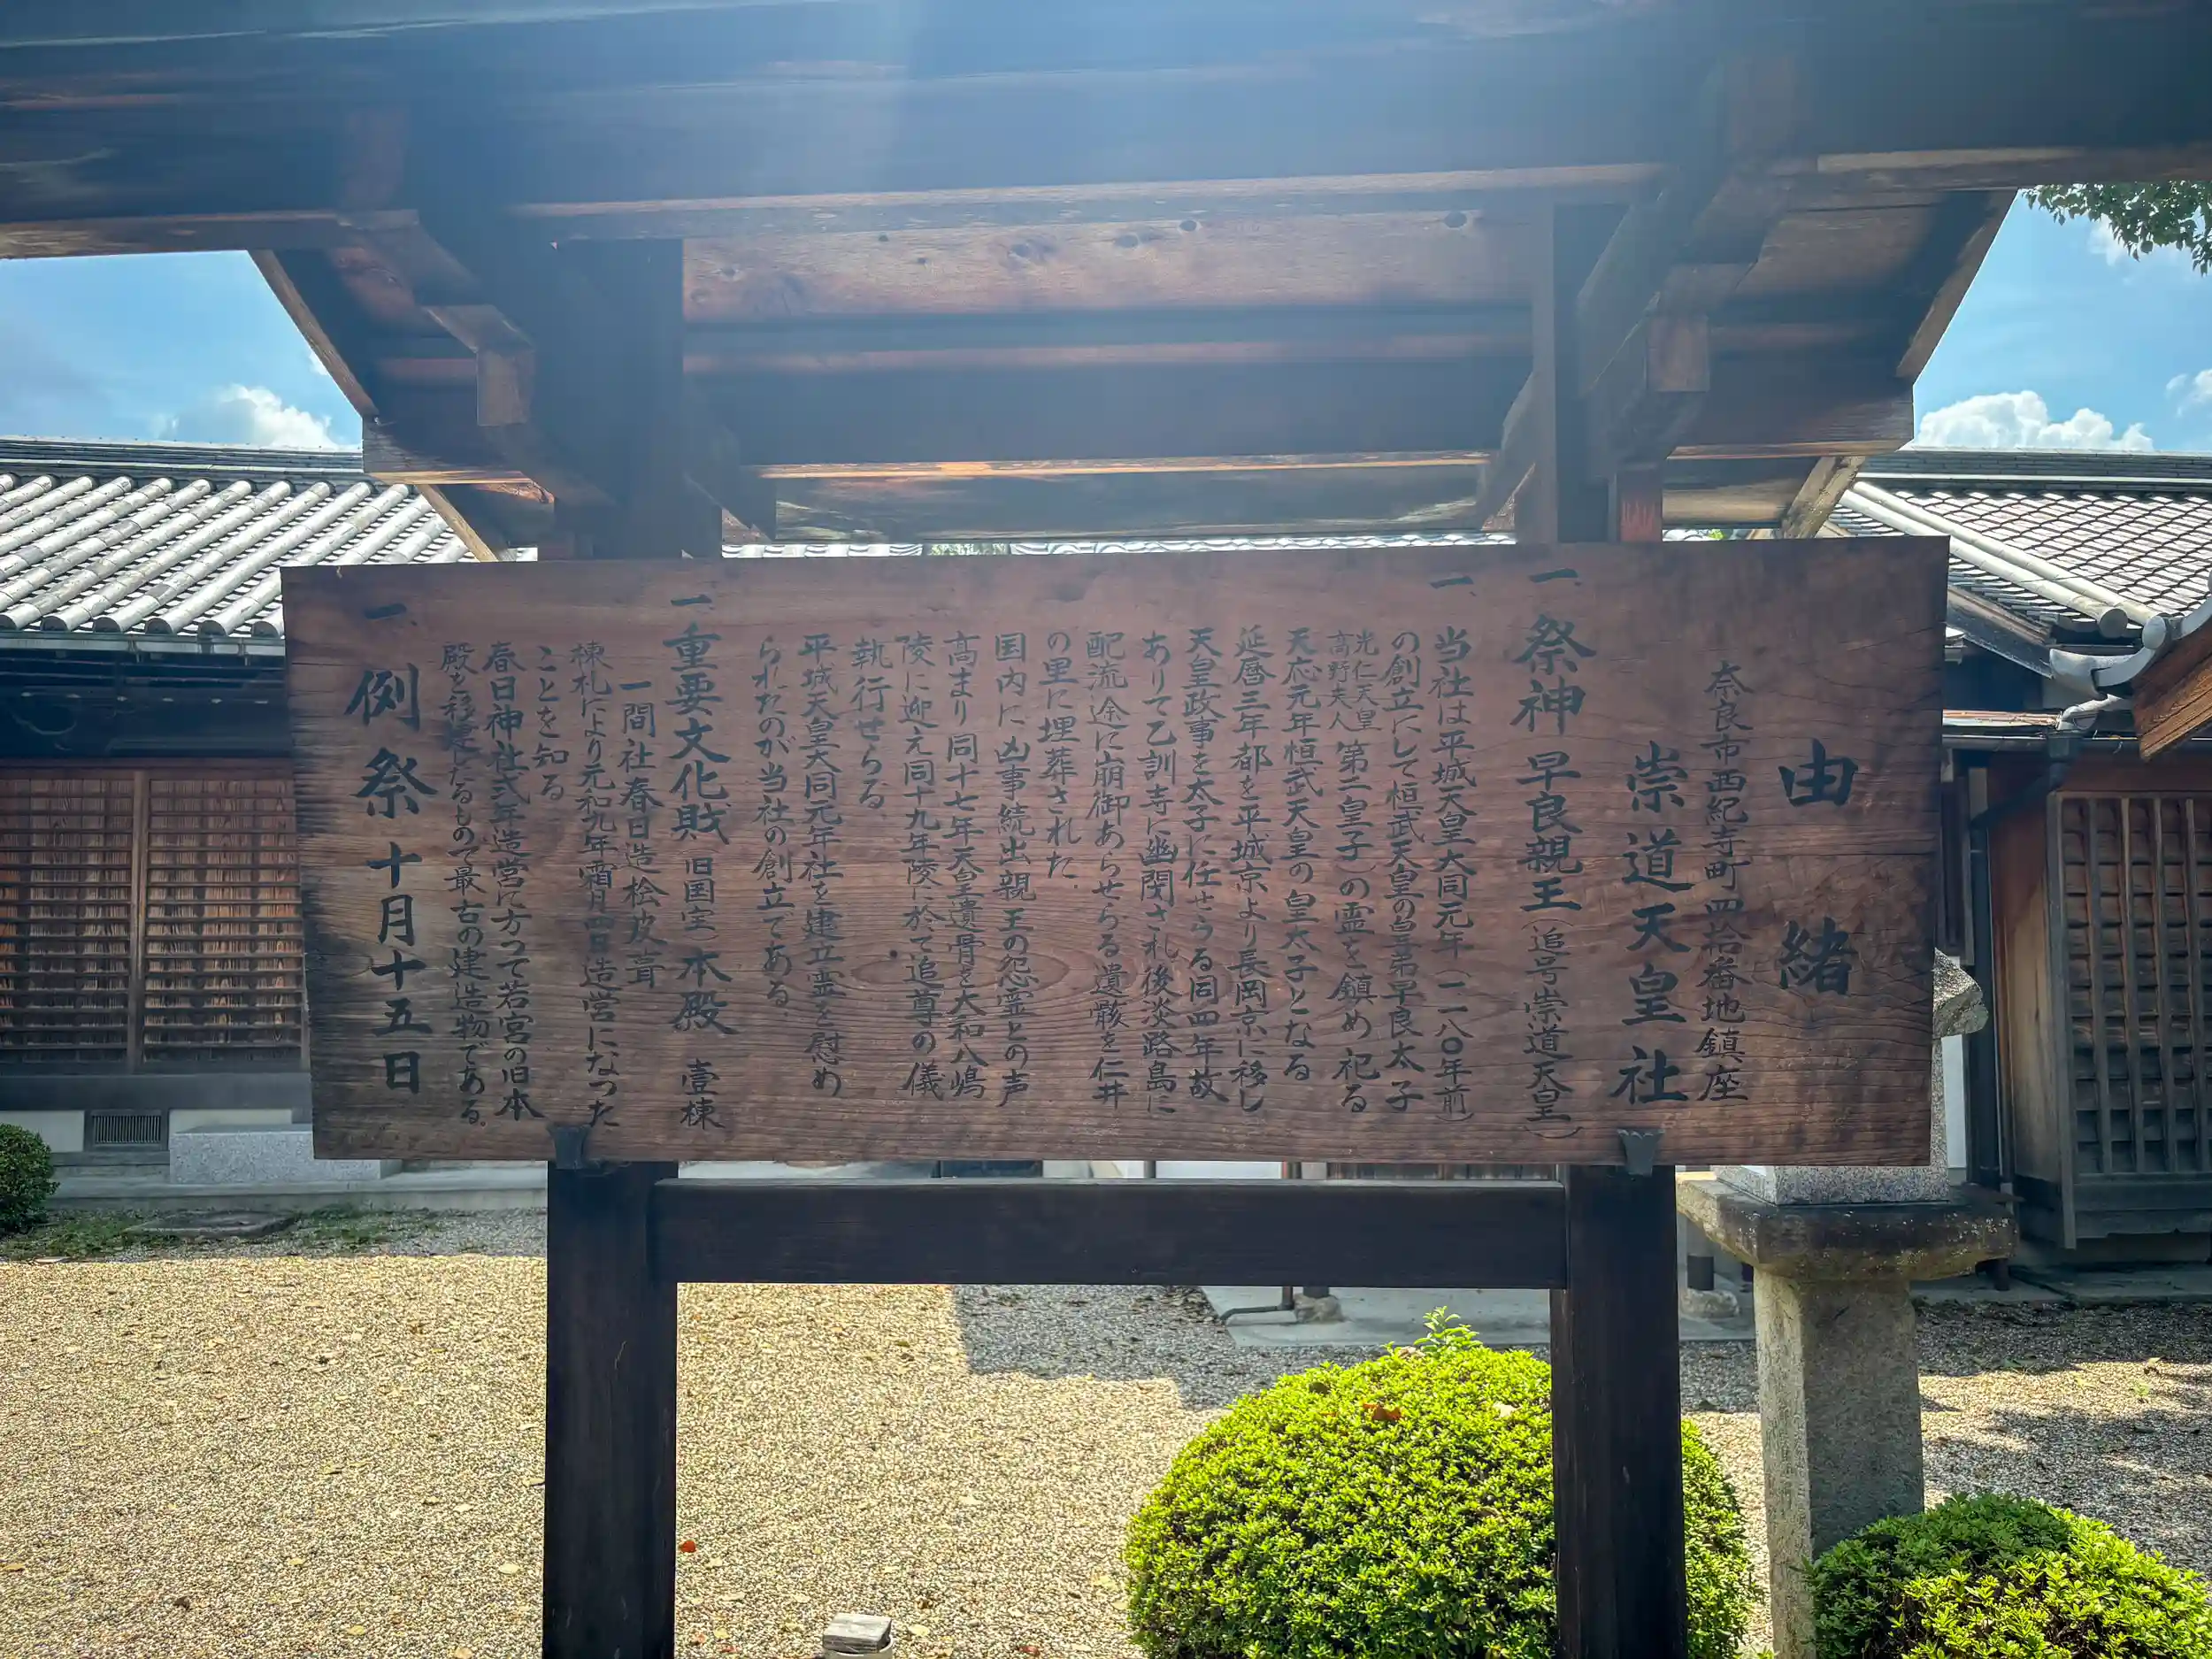 由緒
奈良市西紀寺町四拾番地鎮座
崇道天皇社
一、祭神 早良親王（追号崇道天皇）
一、当社は平城天皇大同元年（一一八〇年前）
の創立にして桓武天皇の皇弟早良太子
光仁天皇
高野夫人 第二皇子）の霊を鎮め祀る
天応元年桓武天皇の皇太子となる
延暦三年都を平城京より長岡京に移し
天皇政事を太子に任せらる同四年故
ありて乙訓寺に幽閉され後淡路島に
配流途に崩御あらせらる遺骸を仁井
の里に埋葬された。
国内に凶事続出親王の怨霊との声
高まり同十七年天皇遺骨を大和八嶋
陵に迎え同十九年陵に於て追尊の儀
執行せらる。
平城天皇大同元年社を建立霊を慰め
られたのが当社の創立である。
一、重要文化財（旧国宝）本殿 壹棟
一間社春日造桧皮葺
棟札により元和九年霜月四日造営になった
ことを知る
春日神社式年造営に方つて若宮の旧本
殿を移建したるもので最古の建造物である。
一、例祭 十月十五日